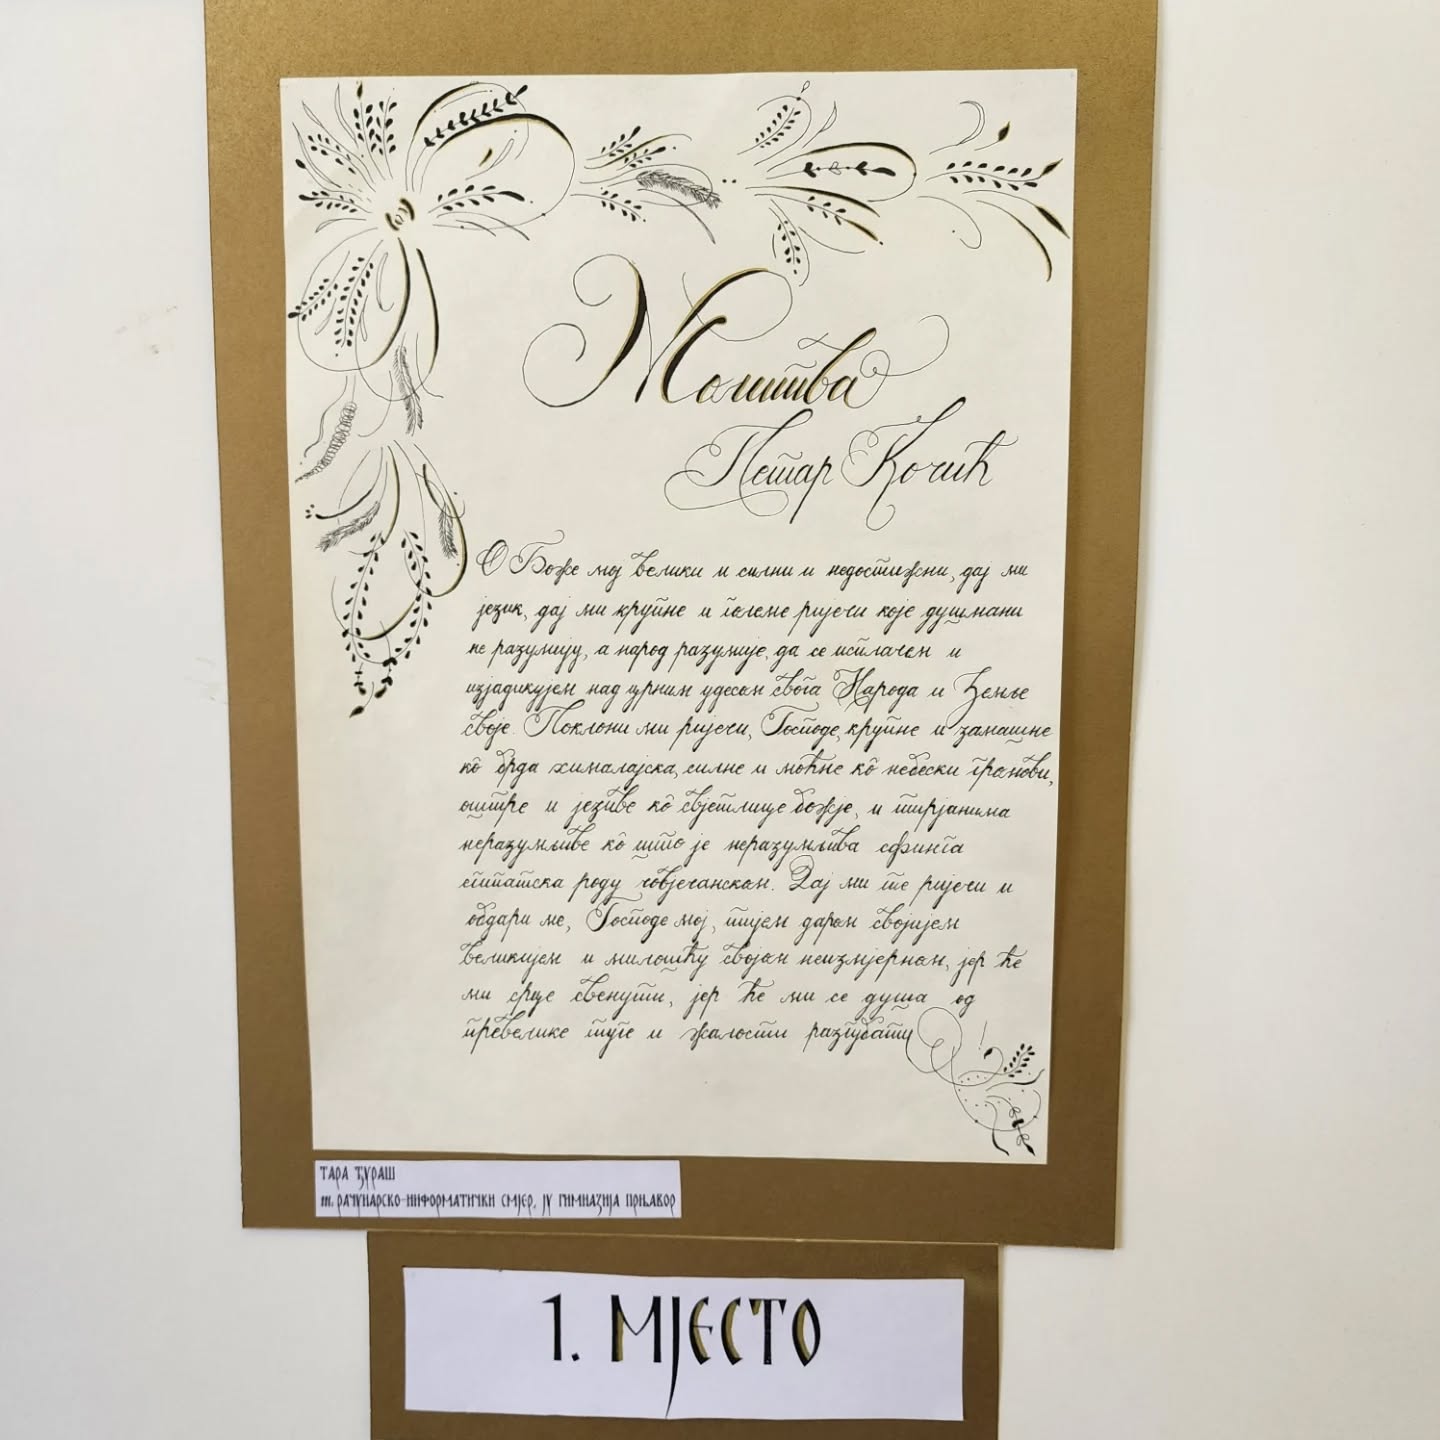 Молитва
Петар Кочић
О Боже мој велики и силни и недостижни, дај ми
језик, дај ми крупне и големе ријечи које душмани
не разумију, а народ разумије, да се исплачем и
изјадикујем над црним удесом свога Народа и Земље
своје. Поклони ми ријечи, Господе, крупне и замашне
кô брда хималајска, силне и моћне кô небески громови,
оштре и језиве кô свјетлице божје, и тирјанима
неразумљиве кô што је неразумљива сфинга
египатска роду човјечанском. Дај ми те ријечи и
обдари ме, Господе мој, тијем даром својијем
великијем и милошћу својом неизмјерном, јер ће
ми срце свенути, јер ће ми се душа од
превелике туге и жалости разгубати!
ТАРА ЂУРАШ
III, РАЧУНАРСКО-ИНФОРМАТИЧКИ СМЈЕР, ЈУ ГИМНАЗИЈА ПРЊАВОР
1. МЈЕСТО